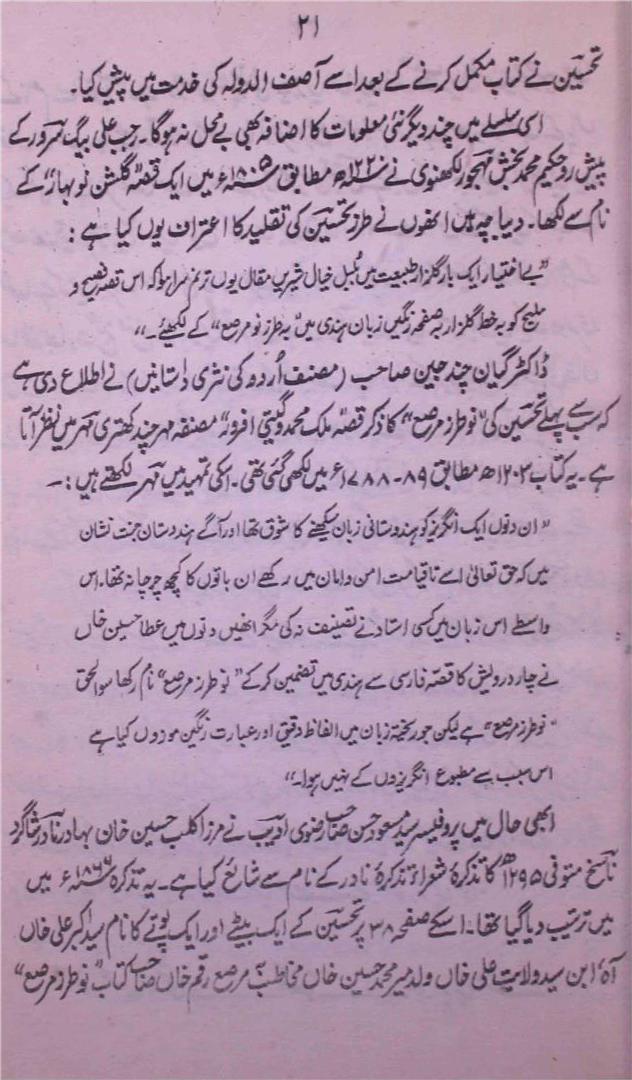 ۲۱
تحسین نے کتاب مکمل کرنے کے بعد اسے آصف الدولہ کی خدمت میں پیش کیا۔
اسی سلسلے میں چند دیگر نئی معلومات کا اضافہ بھی بے محل نہ ہوگا۔ رجب علی بیگ سرور کے
پیش رو حکیم محمد بخش مہجور لکھنوی نے ۱۲۲۰ھ مطابق ۱۸۰۵ء میں ایک قصّہ "گلشن نوبہار" کے
نام سے لکھا۔ دیباچہ میں انھوں نے طرز تحسین کی تقلید کا اعتراف یوں کیا ہے :
"بے اختیار ایک بار گلزار طبیعت میں بُلبل خیال شیریں مقال یوں ترنم سرا ہوا کہ اس قصۂ فصیح و
ملیح کو بہ خط گلزار بہ صفحہ رنگیں زبان ہندی میں بہ طرز "نو مرصع" کے لکھیئے۔"
ڈاکٹر گیان چند جین صاحب (مصنف اُردو کی نثری داستانیں) نے اطلاع دی ہے
کہ سب سے پہلے تحسین کی "نوطرز مرصع" کا ذکر قصّہ "ملک محمد و گیتی افروز" مصنفہ مہر چند کھتری مہر میں نظر آتا
ہے۔ یہ کتاب ۱۲۰۳ھ مطابق ۸۹-۱۷۸۸ء میں لکھی گئی تھی۔ اسکی تمہید میں مہر لکھتے ہیں :—
"ان دنوں ایک انگریز کو ہندوستانی زبان سیکھنے کا شوق تھا اور آگے ہندوستان جنت نشان
میں کہ حق تعالیٰ اسے تا قیامت امن و امان میں رکھے ان باتوں کا کچھ چرچا نہ تھا۔ اس
واسطے اس زبان میں کسی استاد نے تصنیف نہ کی مگر انھیں دنوں میں عطا حسین خاں
نے چار درویش کا قصّہ فارسی سے ہندی میں تضمین کرکے "نوطرز مرصع" نام رکھا سو الحق
"نوطرز مرصع" ہے لیکن جو ریختہ زبان میں الفاظ دقیق اور عبارت رنگین موزوں کیا ہے
اس سبب سے مطبوع انگریزوں کے نہیں ہوا۔"
ابھی حال میں پروفیسر سید مسعود حسن صاحب رضوی ادیب نے مرزا کلب حسین خان بہادر نادر شاگرد
ناسخ متوفی ۱۲۹۵ھ کا تذکرۂ شعراء تذکرۂ نادر کے نام سے شائع کیا ہے۔ یہ تذکرہ ۱۸۶۶ء میں
میں ترتیب دیا گیا تھا۔ اسکے صفحہ ۳۸ پر تحسین کے ایک بیٹے اور ایک پوتے کا نام سید اکبر علی خاں
آہ ابن سید ولایت علی خاں ولد میر محمد حسین خاں مخاطب بہ مرصع رقم خاں صاحب کتاب "نوطرز مرصع"